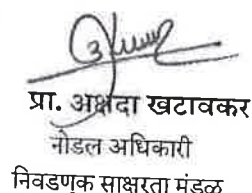 प्रा. अक्षदा खटावकर
नोडल अधिकारी
निवडणूक साक्षरता मंडळ